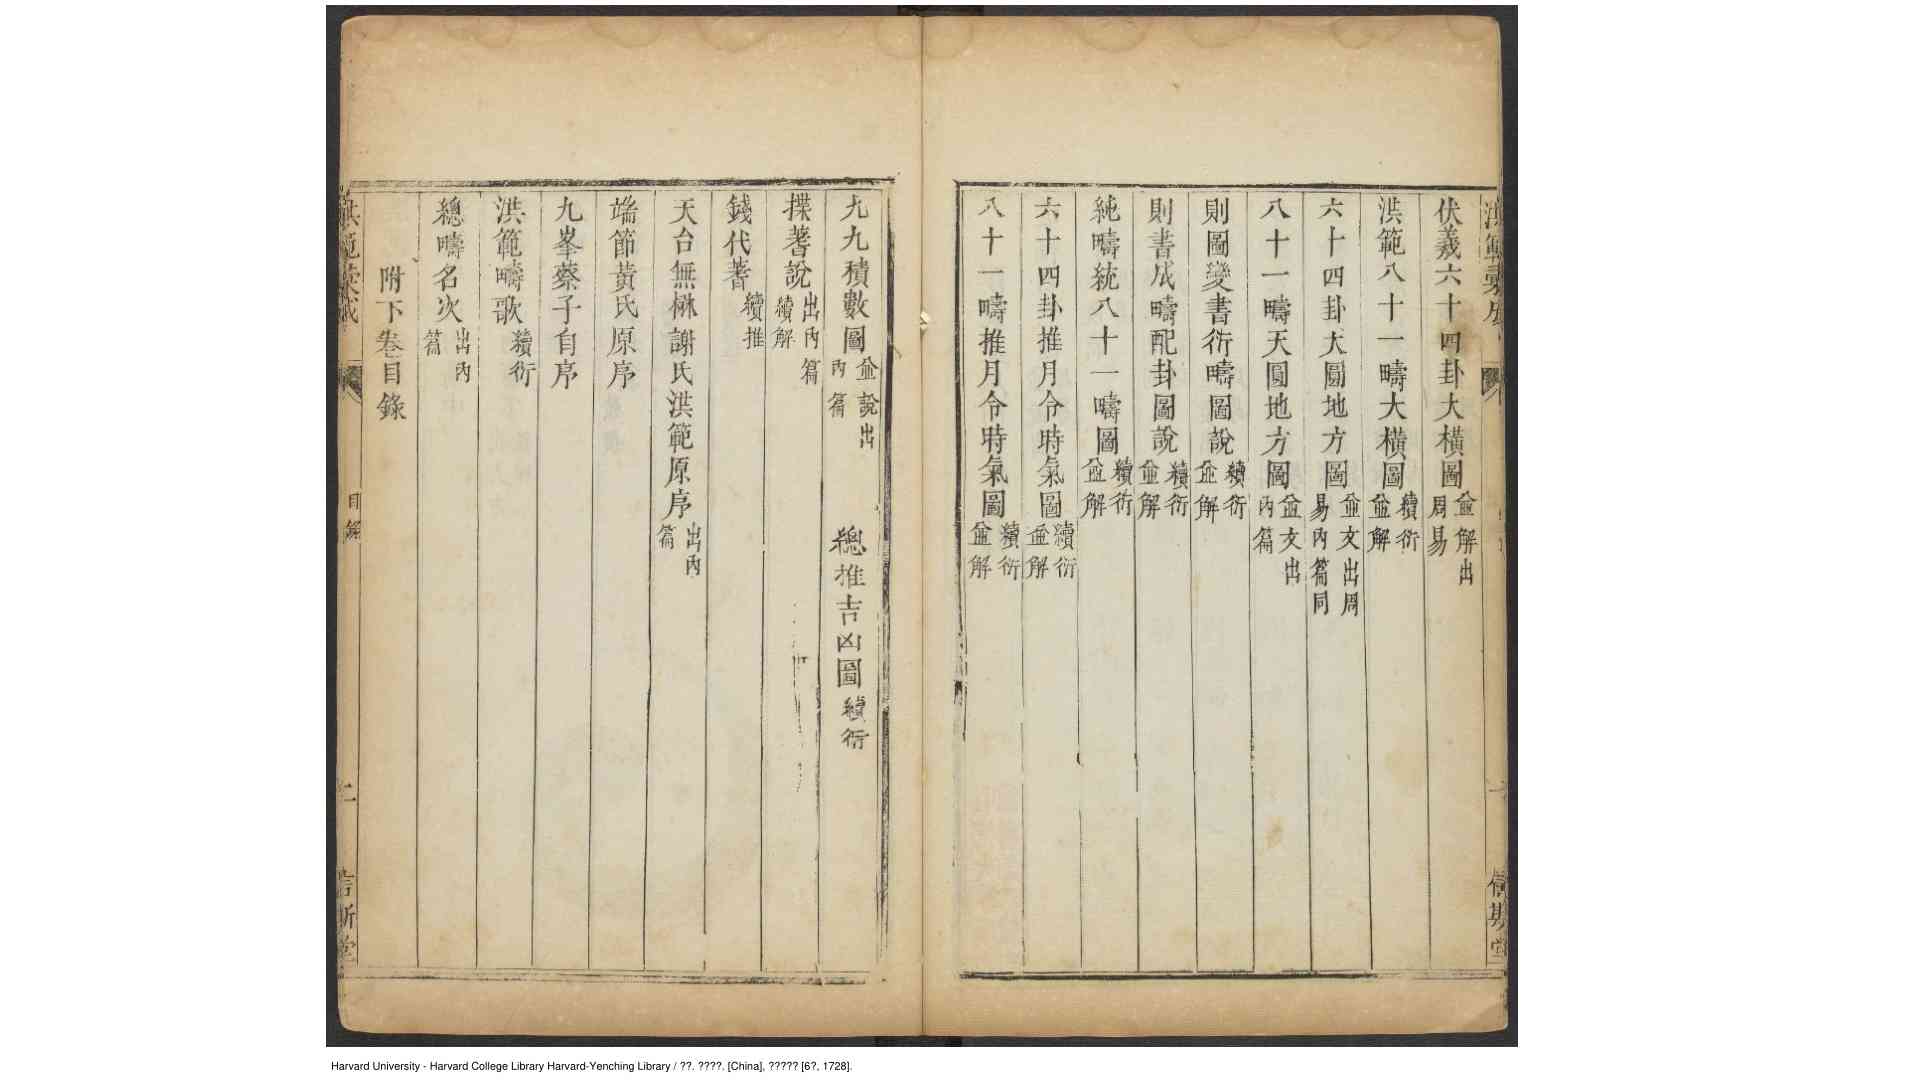 伏羲六十四卦大橫圖 並解出周易
洪範八十一疇大橫圖 續衍並解
六十四卦大圓地方圖 並文出周易內篇同
八十一疇天圓地方圖 並文出內篇
則圖變書衍疇圖說 續衍並解
則書成疇配卦圖說 續衍並解
純疇統八十一疇圖 續衍並解
六十四卦推月令時氣圖 續衍並解
八十一疇推月令時氣圖 續衍並解
九九積數圖 並說出內篇 總推吉凶圖 續衍
揲蓍說 出內篇續解
錢代蓍 續推
天台無楙謝氏洪範原序 出內篇
端節黃氏原序
九峯蔡子自序
洪範疇歌 續衍
總疇名次 出內篇
附下卷目錄
目錄
二
Harvard University - Harvard College Library Harvard-Yenching Library / ??. ????. [China], ????? [6?, 1728].